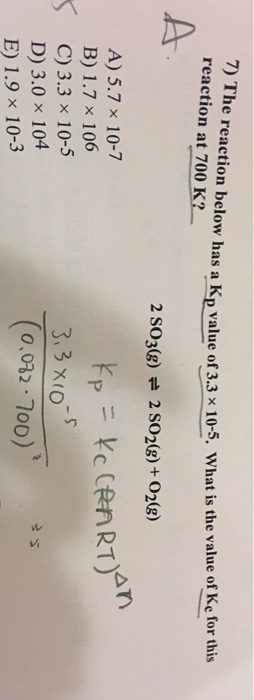 7) The reaction below has a Kp value of 3.3 × 10-5. What is the value of Kc for this
reaction at 700 K?
A.
2 SO3(g) ⇌ 2 SO2(g) + O2(g)
A) 5.7 × 10-7
B) 1.7 × 106
C) 3.3 × 10-5
D) 3.0 × 104
E) 1.9 × 10-3
Kp = Kc (RT)Δn
3.3 × 10-5
(0.082 · 700)